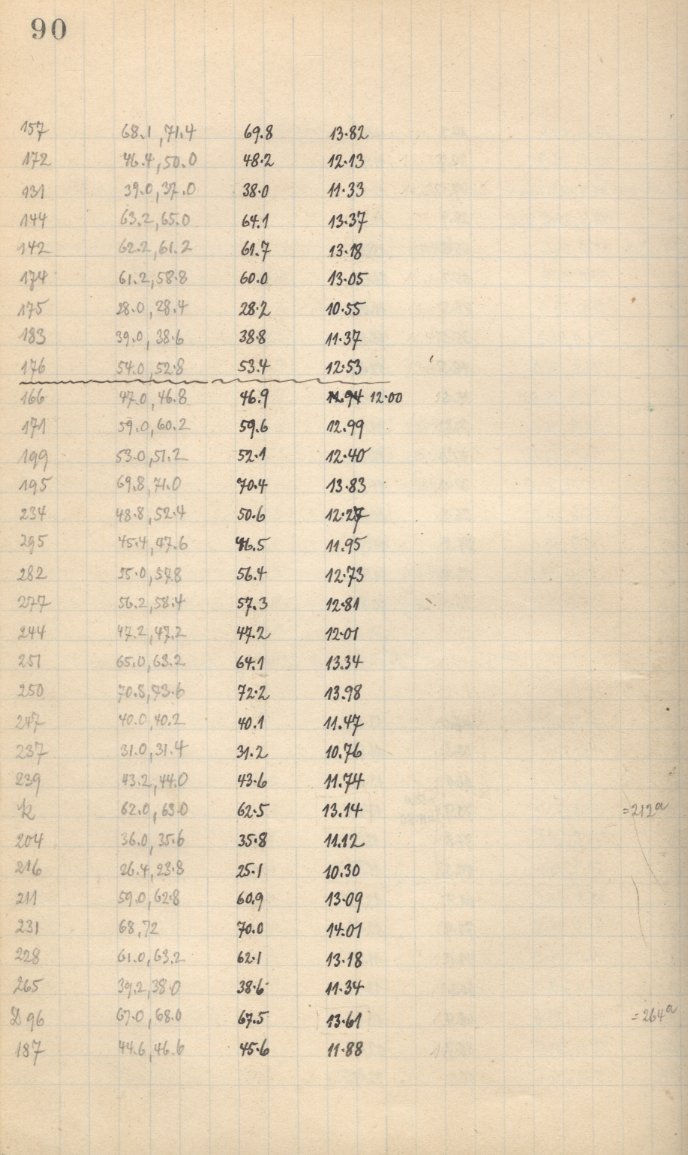 90
157 68.1, 71.4 69.8 13.82
172 46.4, 50.0 48.2 12.13
131 39.0, 37.0 38.0 11.33
144 63.2, 65.0 64.1 13.37
142 62.2, 61.2 61.7 13.18
174 61.2, 58.8 60.0 13.05
175 28.0, 28.4 28.2 10.55
183 39.0, 38.6 38.8 11.37
176 54.0, 52.8 53.4 12.53
166 47.0, 46.8 46.9 11.94 12.00
171 59.0, 60.2 59.6 12.99
199 53.0, 51.2 52.1 12.40
195 69.8, 71.0 70.4 13.83
234 48.8, 52.4 50.6 12.27
295 45.4, 47.6 46.5 11.95
282 55.0, 57.8 56.4 12.73
277 56.2, 58.4 57.3 12.81
244 47.2, 47.2 47.2 12.01
251 65.0, 63.2 64.1 13.34
250 70.8, 73.6 72.2 13.98
247 40.0, 40.2 40.1 11.47
237 31.0, 31.4 31.2 10.76
239 43.2, 44.0 43.6 11.74
k 62.0, 63.0 62.5 13.14 =212a
204 36.0, 35.6 35.8 11.12
216 26.4, 23.8 25.1 10.30
211 59.0, 62.8 60.9 13.09
231 68, 72 70.0 14.01
228 61.0, 63.2 62.1 13.18
265 39.2, 38.0 38.6 11.34
D 96 67.0, 68.0 67.5 13.61 =264a
187 44.6, 46.6 45.6 11.88